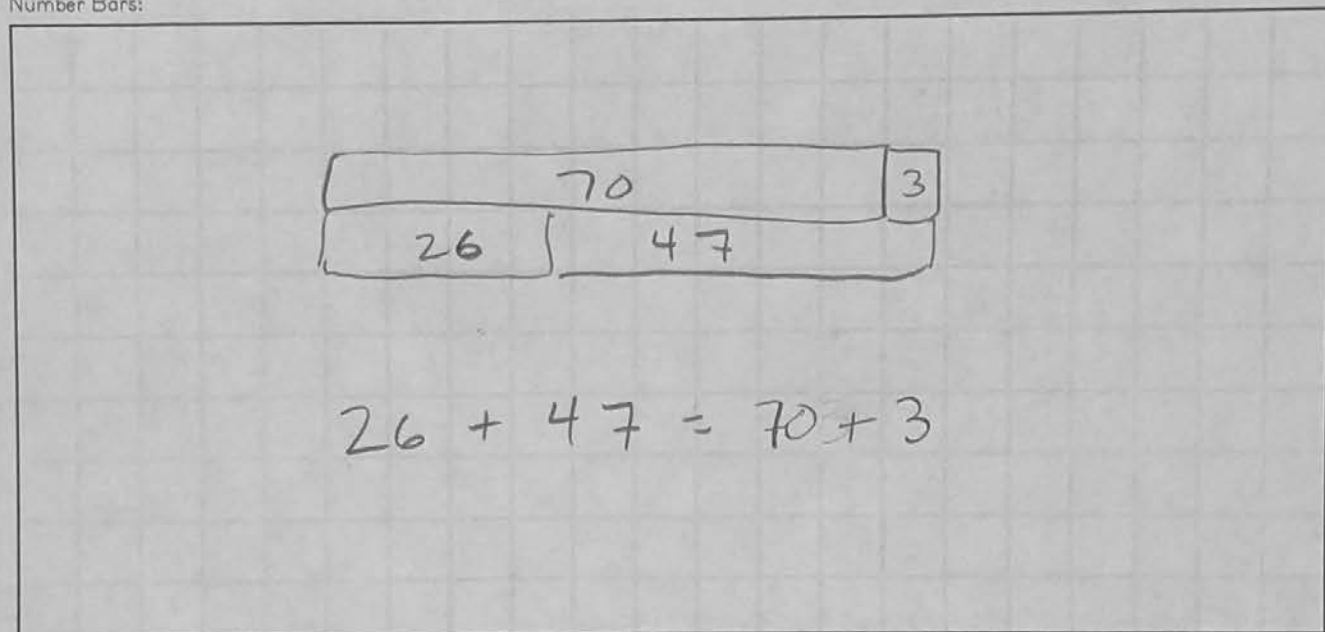 Number Bars:
70 3
26 47
26 + 47 = 70 + 3